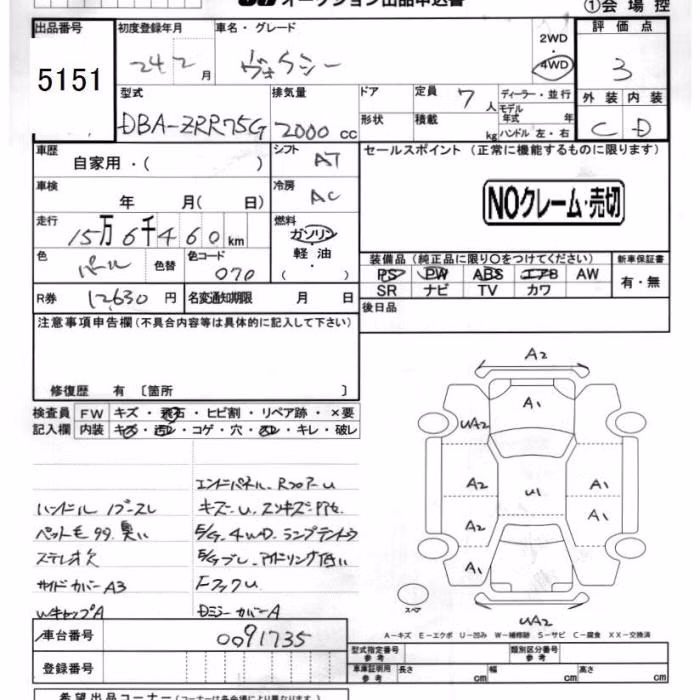 オークション出品申込書
①会場控
出品番号
5151
初度登録年月
24 2 月
車名・グレード
ヴォクシー
2WD
4WD
評価点
3
外装 内装
C D
型式
DBA-ZRR75G
排気量
2000 cc
ドア
形状
定員 7 人
積載 kg
ディーラー・並行
モデル年式 年
ハンドル 左・右
車歴
自家用・( )
シフト
AT
セールスポイント(正常に機能するものに限ります)
NOクレーム・売切
車検
年 月( 日)
冷房
AC
走行
15万6千460km
燃料
ガソリン
軽油
( ・ )
色
パール
色替
色コード
070
装備品(純正品に限り○をつけてください)
PS PW ABS エアB AW
SR ナビ TV カワ
新車保証書
有・無
R券 12,630円
名変通知期限 月 日
後日品
注意事項申告欄(不具合内容等は具体的に記入して下さい)
修復歴 有〔箇所 〕
検査員記入欄
FW キズ・飛石・ヒビ割・リペア跡・×要
内装 キズ・汚レ・コゲ・穴・凹・キレ・破レ
エンドパネル、RフロアーU
ハンドル
キズ・U、スリキズ
ペット毛 臭い
4WD ランプテントウ
ステレオ欠
アイドリング低い
サイドカバーA3
WキャップA
カバーA
A2
A1
WA2
A1
A2
U1
A1
A2
A1
WA2
スペア
A-キズ E-エクボ U-凹み W-補修跡 S-サビ C-腐食 XX-交換済
車台番号
0091735
登録番号
型式指定番号 参考
類別区分番号 参考
車庫証明用 参考
長さ cm
幅 cm
高さ cm
希望出品コーナー(コーナーは各会場で異なります)